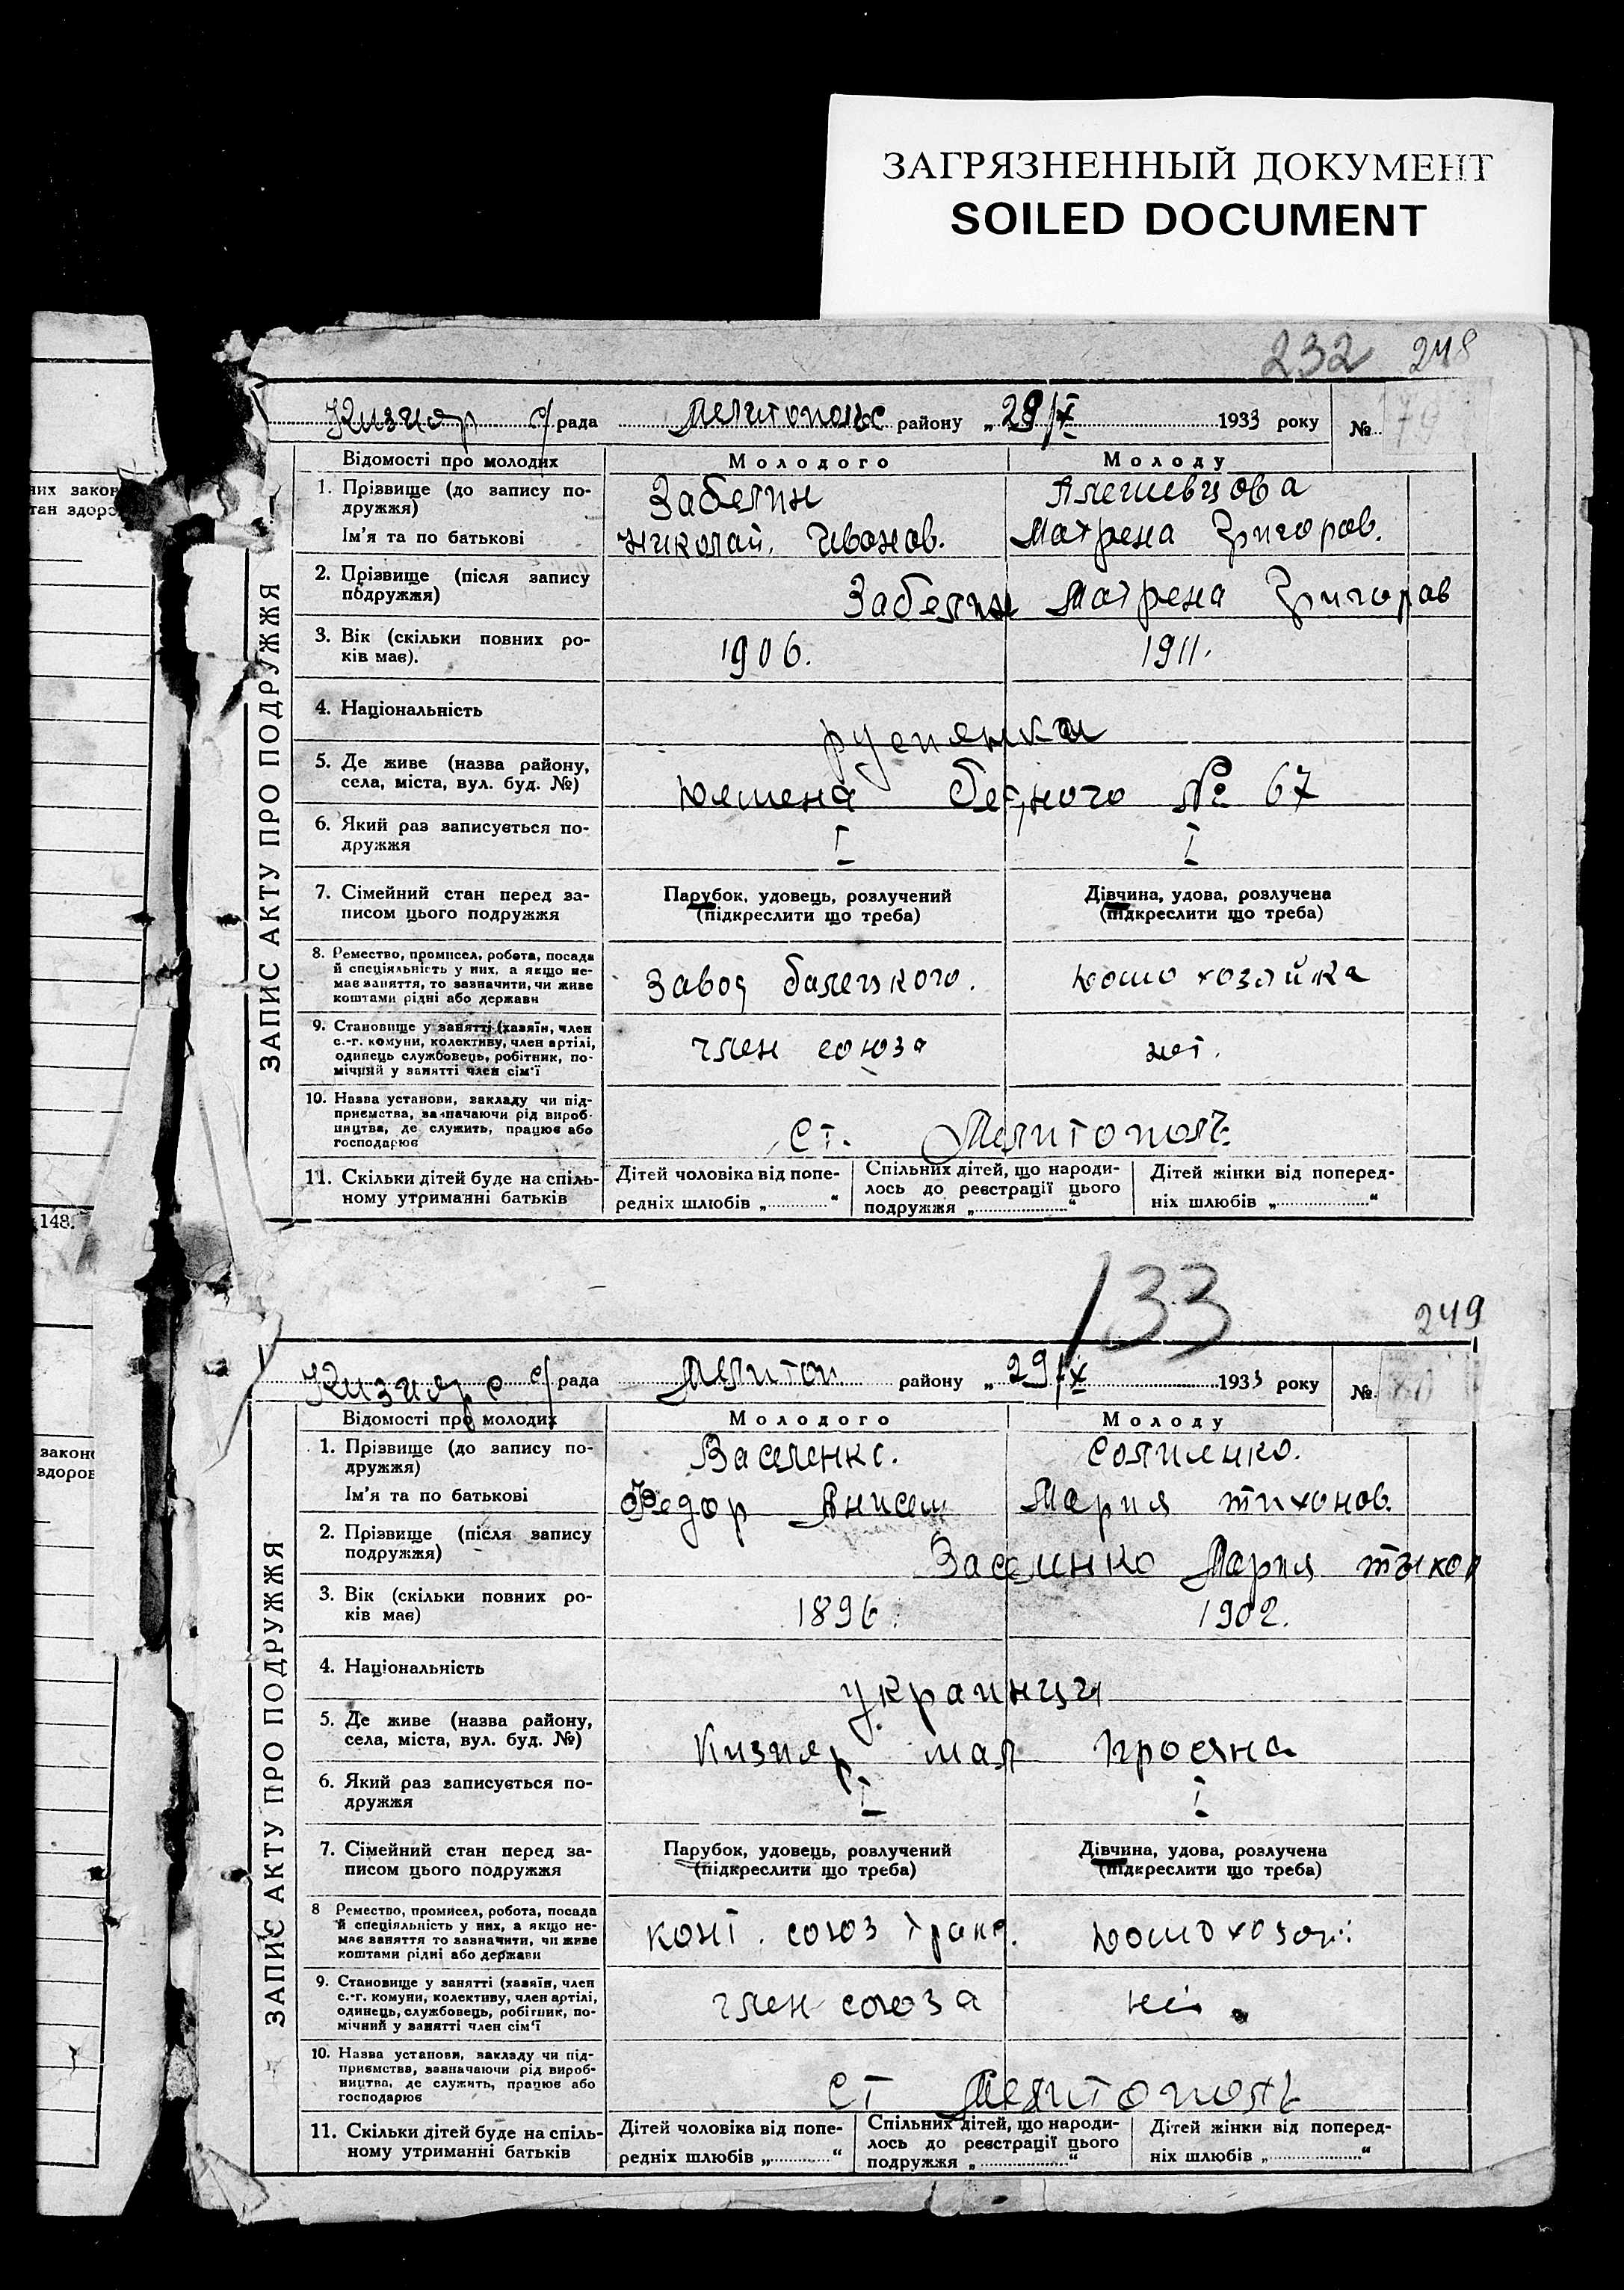 ЗАГРЯЗНЕННЫЙ ДОКУМЕНТ
SOILED DOCUMENT
232 248
Кизияр с/рада Мелитопольс району „29/X 1933 року № 79
ЗАПИС АКТУ ПРО ПОДРУЖЖЯ
Відомості про молодих Молодого Молоду
1. Прізвище (до запису по-
дружжя) Забелин
Ім'я та по батькові Николай. Иванов. Матрена Григоров.
2. Прізвище (після запису
подружжя) Забелин Матрена Григоров
3. Вік (скільки повних ро-
ків має). 1906. 1911.
4. Національність
5. Де живе (назва району,
села, міста, вул. буд. №) Демена бедного № 67
6. Який раз записується по-
дружжя I I
7. Сімейний стан перед за-
писом цього подружжя
Парубок, удовець, розлучений
(підкреслити що треба)
Дівчина, удова, розлучена
(підкреслити що треба)
8. Ремество, промисел, робота, посада
й спеціяльність у них, а якщо не-
має заняття, то зазначити, чи живе
коштами рідні або держави
Завод домо хозяйка
9. Становище у занятті (хазяїн, член
с.-г. комуни, колективу, член артілі,
одинець службовець, робітник, по-
мічний у занятті член сім'ї
член союза нет.
10. Назва установи, закладу чи під-
приємства, зазначаючи рід вироб-
ництва, де служить, працює або
господарює
ст. Мелитополь
11. Скільки дітей буде на спіль-
ному утриманні батьків
Дітей чоловіка від попе-
редніх шлюбів „ “
Спільних дітей, що народи-
лось до реєстрації цього
подружжя „ “
Дітей жінки від поперед-
ніх шлюбів „ “
133 249
Кизияр с с/рада Мелитоп району „29/X 1933 року № 80
ЗАПИС АКТУ ПРО ПОДРУЖЖЯ
Відомості про молодих Молодого Молоду
1. Прізвище (до запису по-
дружжя)
Ім'я та по батькові Федор Анисем Мария тихонов.
2. Прізвище (після запису
подружжя) Мария
3. Вік (скільки повних ро-
ків має) 1896. 1902.
4. Національність украинцы
5. Де живе (назва району,
села, міста, вул. буд. №) Кизияр мал
6. Який раз записується по-
дружжя I I
7. Сімейний стан перед за-
писом цього подружжя
Парубок, удовець, розлучений
(підкреслити що треба)
Дівчина, удова, розлучена
(підкреслити що треба)
8 Ремество, промисел, робота, посада
й спеціяльність у них, а якщо не-
має заняття то зазначити, чи живе
коштами рідні або держави
конт. союз транс.
9. Становище у занятті (хазяїн, член
с.-г. комуни, колективу, член артілі,
одинець, службовець, робітник, по-
мічний у занятті член сім'ї
член союза нет.
10. Назва установи, закладу чи під-
приємства, зазначаючи рід вироб-
ництва, де служить, працює або
господарює
ст Мелитополь
11. Скільки дітей буде на спіль-
ному утриманні батьків
Дітей чоловіка від попе-
редніх шлюбів „ “
Спільних дітей, що народи-
лось до реєстрації цього
подружжя „ “
Дітей жінки від поперед-
ніх шлюбів „ “
148.